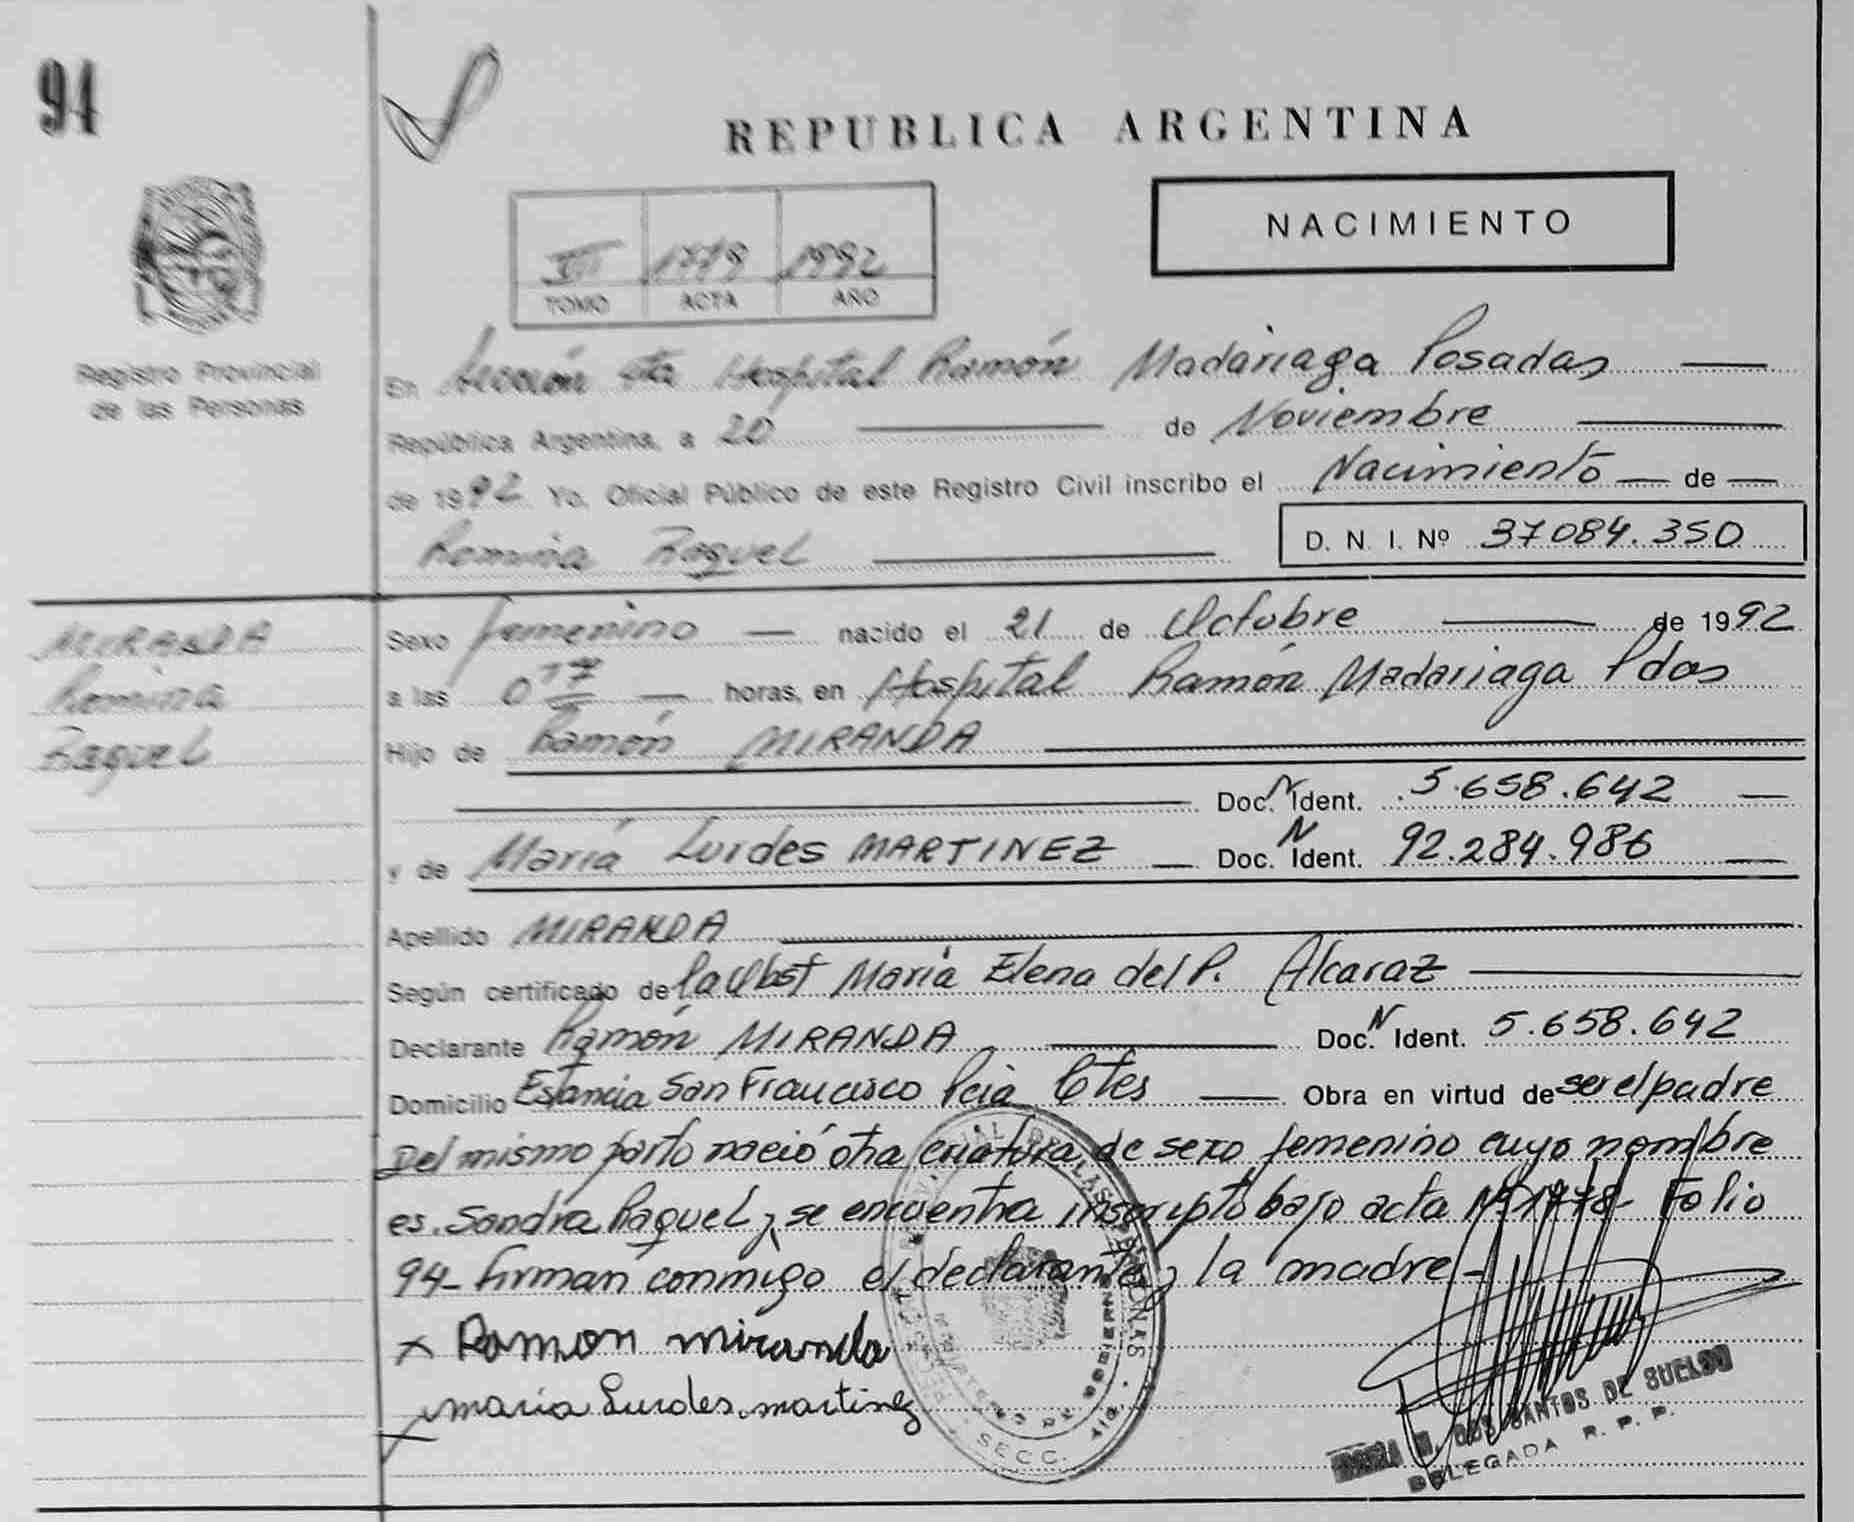 94
REPUBLICA ARGENTINA
NACIMIENTO
VII 1779 1992
TOMO ACTA AÑO
Registro Provincial
de las Personas
En Sección 5ta Hospital Ramón Madariaga Posadas
República Argentina, a 20 de Noviembre
de 1992 Yo, Oficial Público de este Registro Civil inscribo el Nacimiento de
Romina Raquel D. N. I. Nº 37084.350
MIRANDA
Romina
Raquel
Sexo femenino nacido el 21 de Octubre de 1992
a las 0 17 horas, en Hospital Ramón Madariaga Pdas
Hijo de Ramón MIRANDA
Doc. N Ident. 5.658.642
y de María Lurdes MARTINEZ Doc. N Ident. 92.284.986
Apellido MIRANDA
Según certificado de la Obst María Elena del P. Alcaraz
Declarante Ramón MIRANDA Doc. N Ident. 5.658.642
Domicilio Estancia San Francisco Pcia Ctes Obra en virtud de ser el padre
Del mismo parto nació otra criatura de sexo femenino cuyo nombre
es. Sandra Raquel, se encuentra inscripto bajo acta Nº 1778 Folio
94- Firman conmigo el declarante y la madre-
x Ramon miranda
x maria Lurdes martinez
SECC.
DOS SANTOS DE SUELDO
DELEGADA R. P. P.